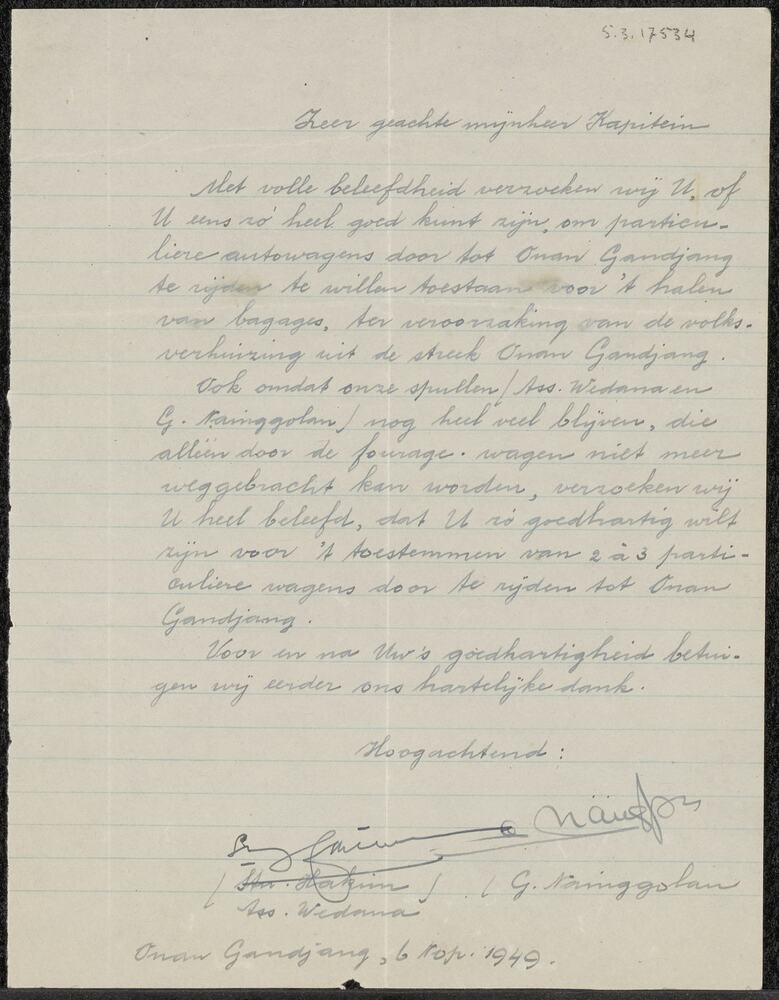 5.3.17534
Zeer geachte mijnheer Kapitein
Met volle beleefdheid verzoeken wij U, of
U eens zó heel goed kunt zijn, om particu-
liere autowagens door tot Onan Gandjang
te rijden te willen toestaan voor 't halen
van bagages, ter veroorzaking van de volks-
verhuizing uit de streek Onan Gandjang.
Ook omdat onze spullen / Ass. Wedana en
G. Nainggolan / nog heel veel blijven, die
alléén door de fourage-wagen niet meer
weggebracht kan worden, verzoeken wij
U heel beleefd, dat U zó goedhartig wilt
zijn voor 't toestemmen van 2 à 3 parti-
culiere wagens door te rijden tot Onan
Gandjang.
Voor en na Uw's goedhartigheid betui-
gen wij eerder ons hartelijke dank.
Hoogachtend:
/ Stn. Hakim / / G. Nainggolan
Ass. Wedana
Onan Gandjang, 6 Nop. 1949.